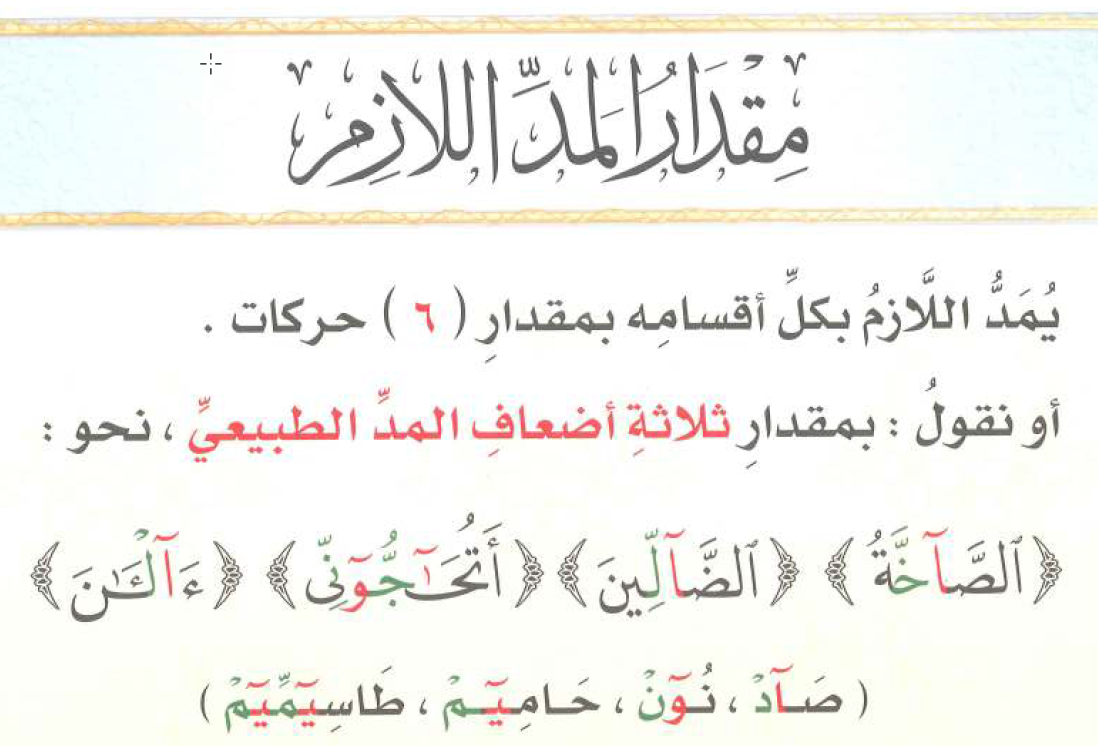 مِقْدَارُ الْمَدِّ اللَّازِمِ
يُمَدُّ اللَّازمُ بكلِّ أقسامِه بمقدارِ ( ٦ ) حركات .
أو نقولُ : بمقدارِ ثلاثةِ أضعافِ المدِّ الطبيعيِّ ، نحو :
﴿ ٱلصَّآخَّةُ ﴾ ﴿ ٱلضَّآلِّينَ ﴾ ﴿ أَتُحَـٰٓجُّوٓنِّى ﴾ ﴿ ءَآلْـَٔـٰنَ ﴾
( صَـآدْ ، نُـوٓنْ ، حَـامِيٓـمْ ، طَاسِيٓمِّيٓمْ )